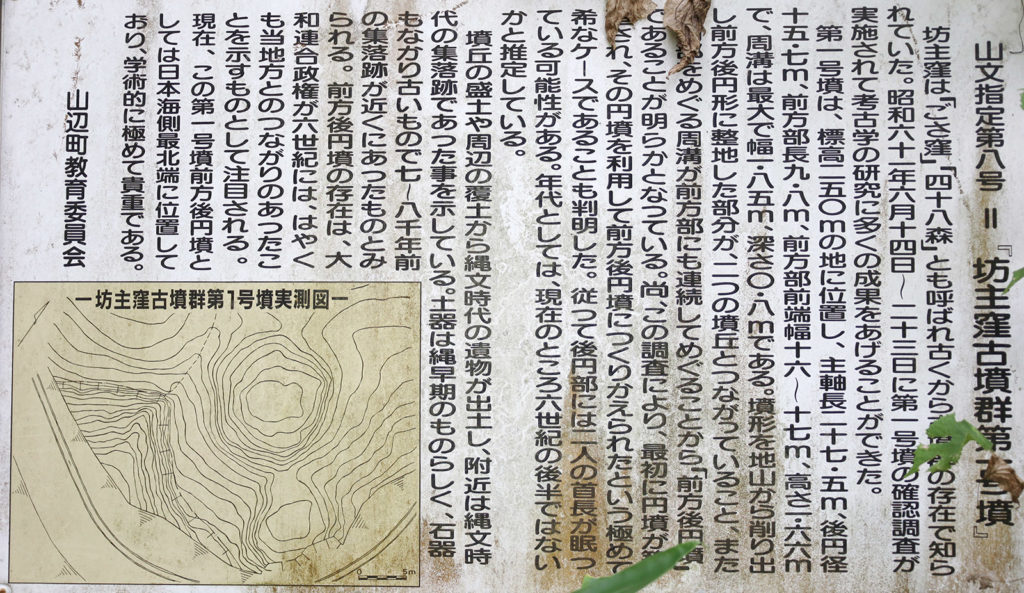 山文指定第八号 = 『坊主窪古墳群第一号墳』
坊主窪は「ごさ窪」「四十八森」とも呼ばれ古くから の存在で知ら
れていた。昭和六十一年六月十四日～二十三日に第一号墳の確認調査が
実施されて考古学の研究に多くの成果をあげることができた。
第一号墳は、標高二五〇mの地に位置し、主軸長二十七・五m、後円径
十五・七m、前方部長九・八m、前方部前端幅十六～十七m、高さ二・六六m
で、周溝は最大で幅一・八五m、深さ〇・八mである。墳形を地山から削り出
し前後円形に整地した部分が、二つの墳丘とつながっていること、また
部をめぐる周溝が前方部にも連続してめぐることから、「前方後円墳」
であることが明らかとなっている。尚、この調査により、最初に円墳が築
され、その円墳を利用して前方後円墳につくりかえられたという極めて
希なケースであることも判明した。従って後円部には二人の首長が眠っ
ている可能性がある。年代としては、現在のところ六世紀の後半ではない
かと推定している。
墳丘の盛土や周辺の覆土から縄文時代の遺物が出土し、附近は縄文時
代の集落跡であった事を示している。土器は縄早期のものらしく、石器
もなかり古いもので七～八千年前
の集落跡が近くにあったものとみ
られる。前方後円墳の存在は、大
和連合政権が六世紀には、はやく
も当地方とのつながりのあったこ
とを示すものとして注目される。
現在、この第一号墳前方後円墳と
しては日本海側最北端に位置して
おり、学術的に極めて貴重である。
山辺町教育委員会
―坊主窪古墳群第1号墳実測図―
0 5m